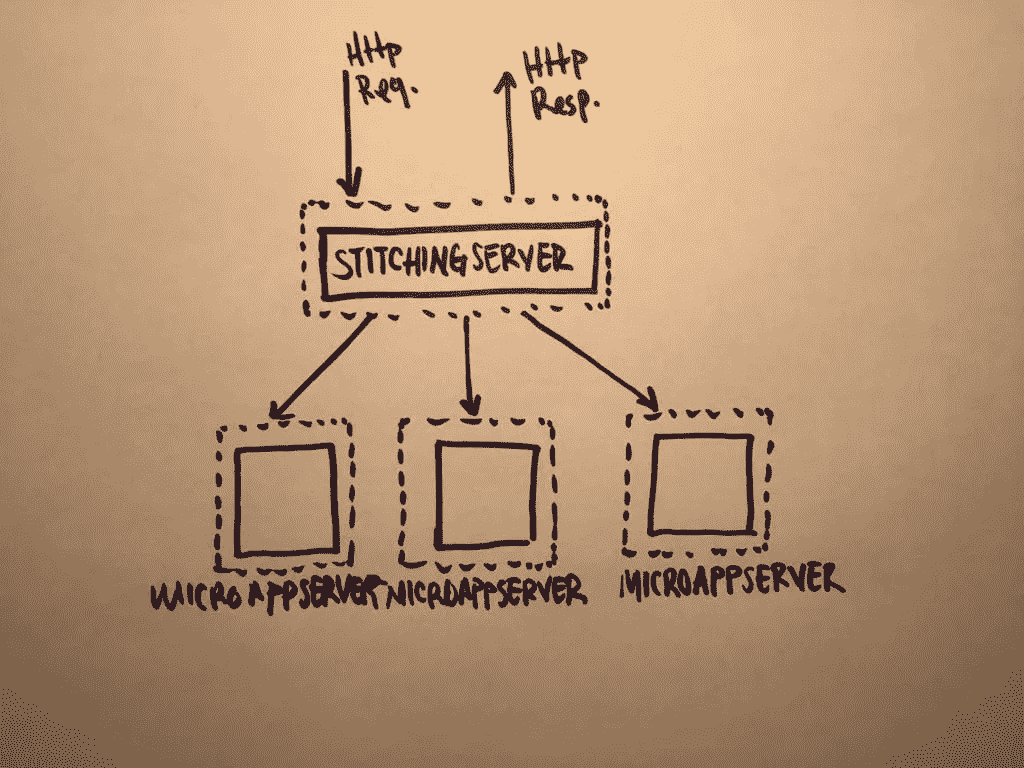 HTTp
Req.
HTTp
Resp.
STITCHING SERVER
MICRO APPSERVER
MICROAPPSERVER
MICROAPPSERVER